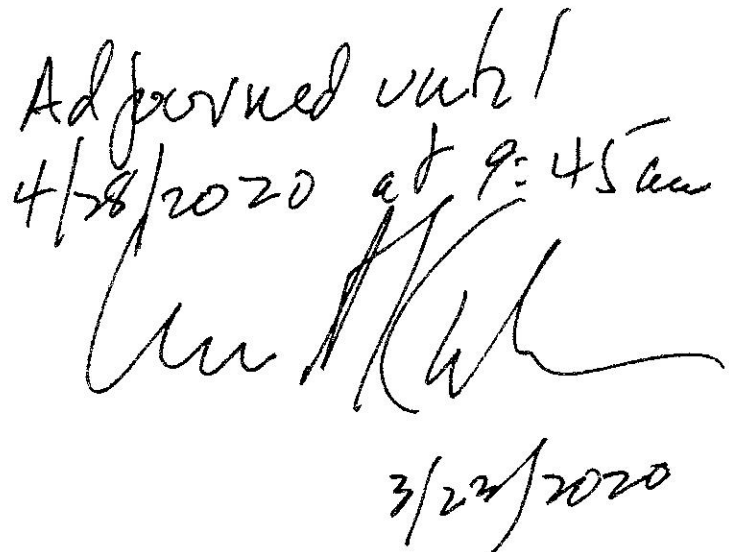 Adjourned until
4/28/2020 at 9:45am
3/23/2020